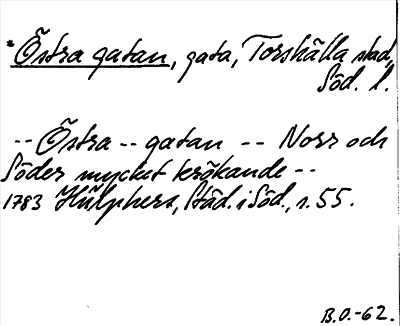 *Östra gatan, gata, Torshälla stad,
Söd. l.
-- Östra -- gatan -- Norr och
Söder mycket krökande --
1783 Hülphers, Städ. i Söd., s. 55.
B.O.-62.